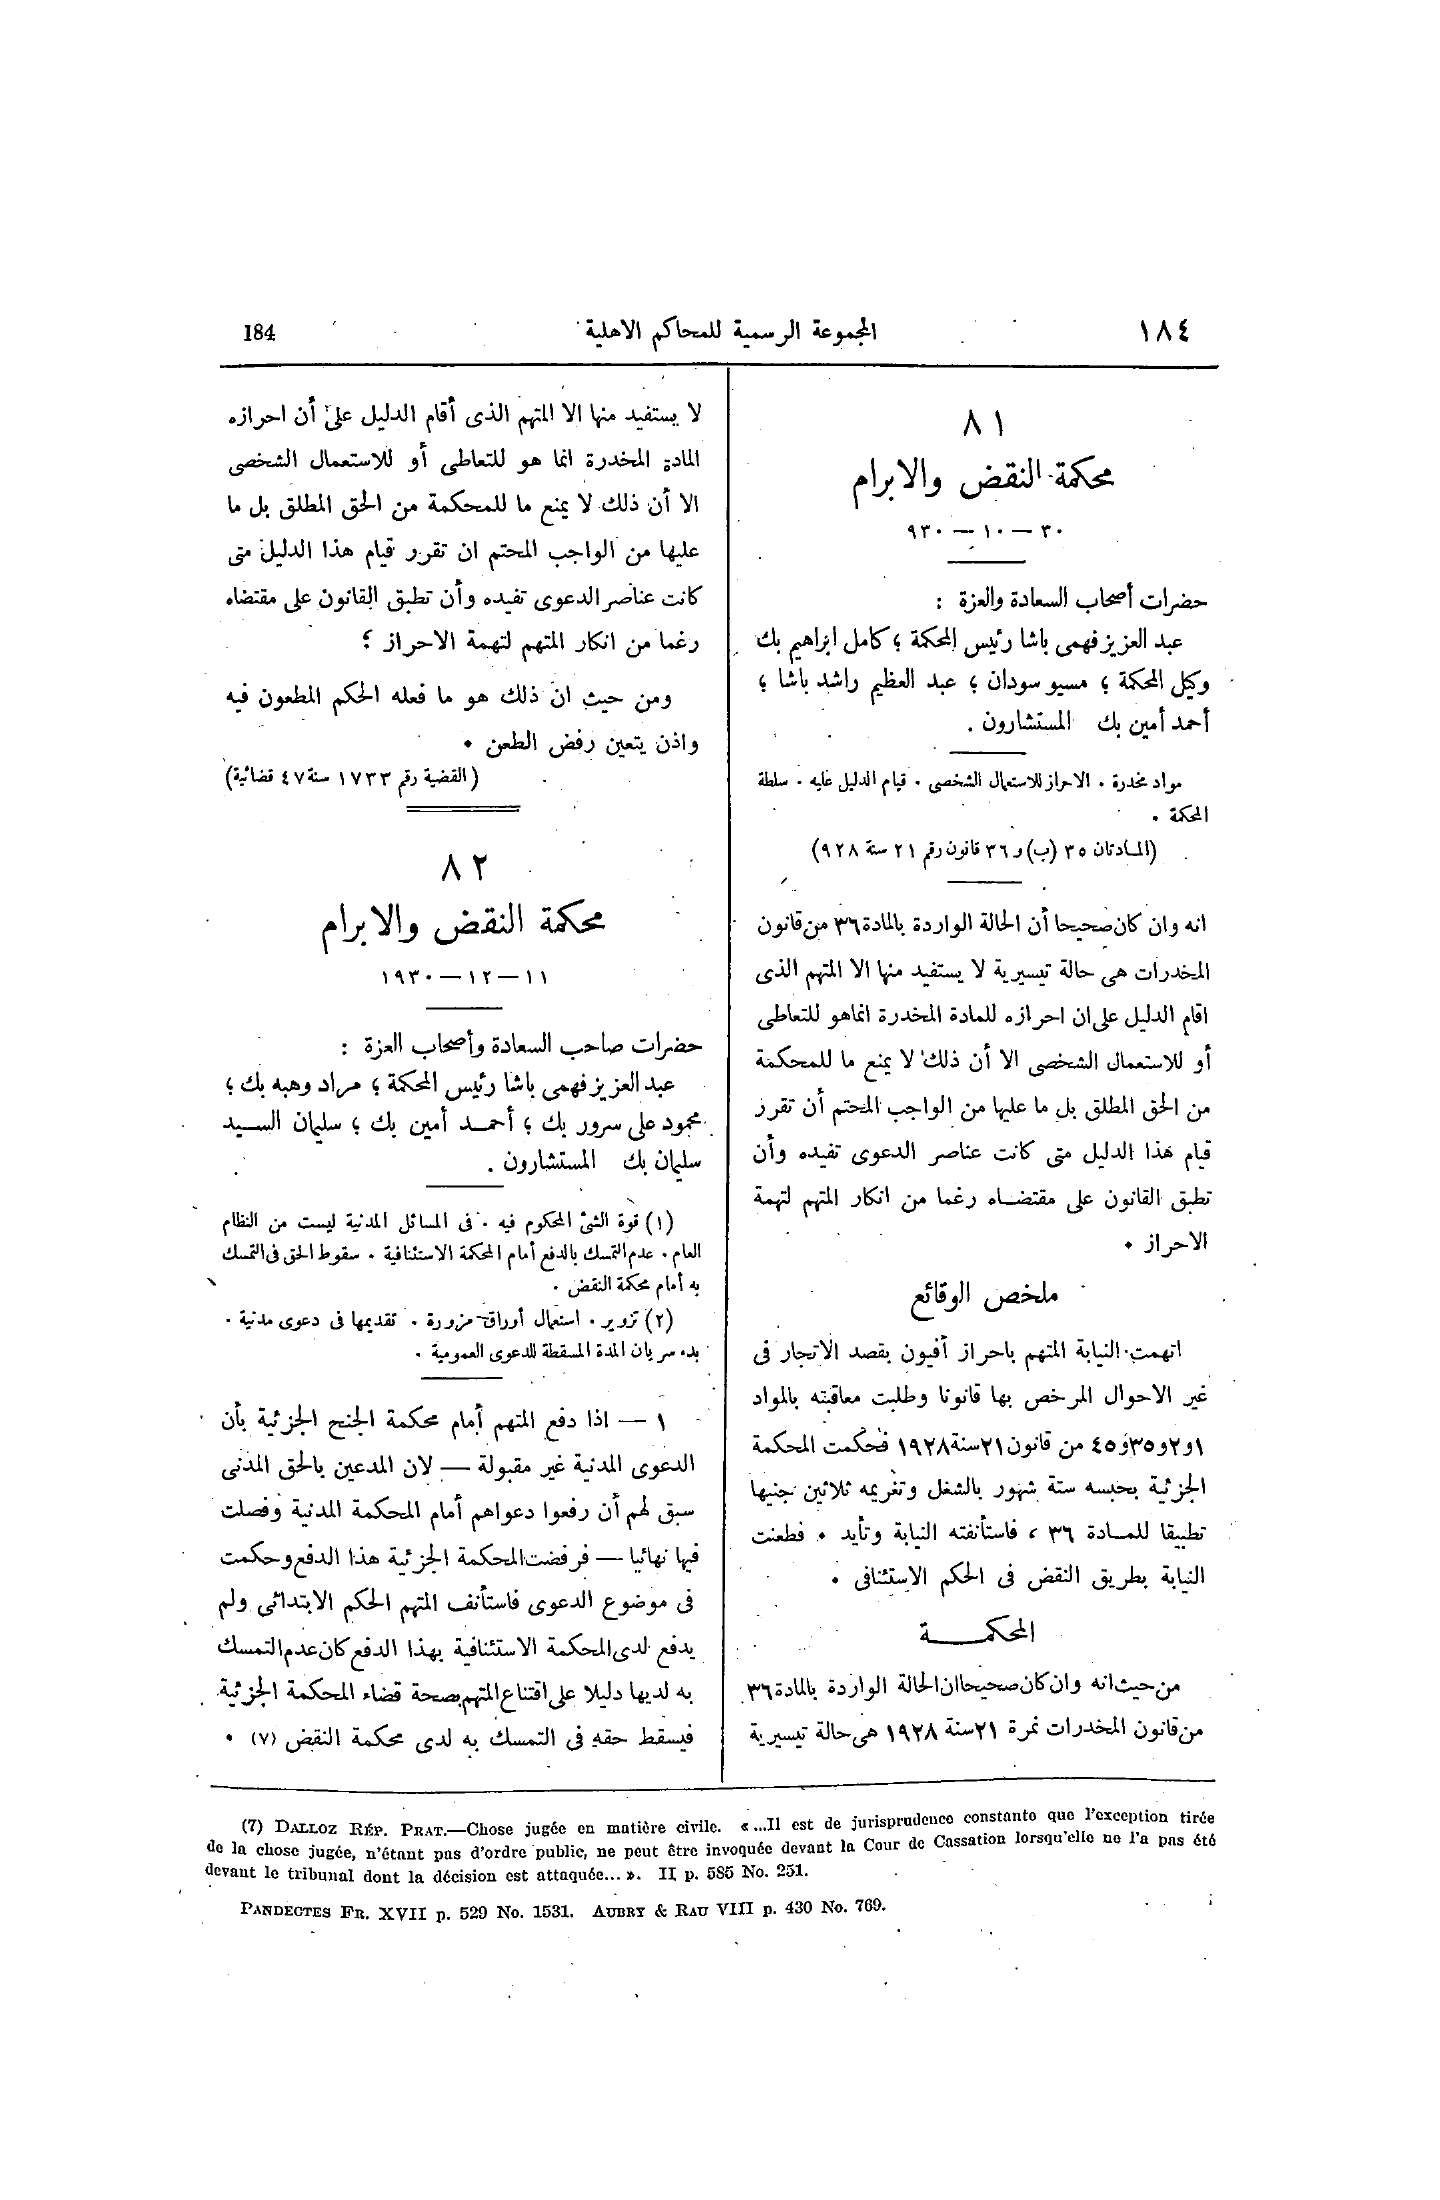 ١٨٤ المجموعة الرسمية للمحاكم الاهلية 184
٨١
محكمة النقض والابرام
٣٠ — ١٠ — ٩٣٠
حضرات أصحاب السعادة والعزة :
عبد العزيز فهمى باشا رئيس المحكمة ؛ كامل ابراهيم بك
وكيل المحكمة ؛ مسيو سودان ؛ عبد العظيم راشد باشا ؛
أحمد أمين بك المستشارون .
مواد مخدرة . الاحراز للاستعمال الشخصى . قيام الدليل عليه . سلطة
المحكمة .
(المادتان ٣٥ (ب) و ٣٦ قانون رقم ٢١ سنة ٩٢٨)
انه وان كان صحيحا أن الحالة الواردة بالمادة ٣٦ من قانون
المخدرات هى حالة تيسيرية لا يستفيد منها الا المتهم الذى
اقام الدليل على ان احرازه للمادة المخدرة انما هو للتعاطى
أو للاستعمال الشخصى الا أن ذلك لا يمنع ما للمحكمة
من الحق المطلق بل ما عليها من الواجب المحتم أن تقرر
قيام هذا الدليل متى كانت عناصر الدعوى تفيده وأن
تطبق القانون على مقتضاه رغما من انكار المتهم لتهمة
الاحراز .
ملخص الوقائع
اتهمت النيابة المتهم باحراز أفيون بقصد الاتجار فى
غير الاحوال المرخص بها قانونا وطلبت معاقبته بالمواد
١و٢و٣٥و٤٥ من قانون ٢١ سنة ١٩٢٨ فحكمت المحكمة
الجزئية بحبسه ستة شهور بالشغل وتغريمه ثلاثين جنيها
تطبيقا للمادة ٣٦ ، فاستأنفته النيابة وتأيد . فطعنت
النيابة بطريق النقض فى الحكم الاستئنافى .
المحكمة
من حيث انه وان كان صحيحا ان الحالة الواردة بالمادة ٣٦
من قانون المخدرات نمرة ٢١ سنة ١٩٢٨ هى حالة تيسيرية
لا يستفيد منها الا المتهم الذى أقام الدليل على أن احرازه
المادة المخدرة انما هو للتعاطى أو للاستعمال الشخصى
الا أن ذلك لا يمنع ما للمحكمة من الحق المطلق بل ما
عليها من الواجب المحتم ان تقرر قيام هذا الدليل متى
كانت عناصر الدعوى تفيده وأن تطبق القانون على مقتضاه
رغما من انكار المتهم لتهمة الاحراز ؟
ومن حيث ان ذلك هو ما فعله الحكم المطعون فيه
واذن يتعين رفض الطعن .
(القضية رقم ١٧٣٣ سنة ٤٧ قضائية)
٨٢
محكمة النقض والابرام
١١ — ١٢ — ١٩٣٠
حضرات صاحب السعادة وأصحاب العزة :
عبد العزيز فهمى باشا رئيس المحكمة ؛ مراد وهبه بك ؛
محمود على سرور بك ؛ أحمد أمين بك ؛ سليمان السيد
سليمان بك المستشارون .
(١) قوة الشئ المحكوم فيه . فى المسائل المدنية ليست من النظام
العام . عدم التمسك بالدفع أمام المحكمة الاستئنافية . سقوط الحق فى التمسك
به أمام محكمة النقض .
(٢) تزوير . استعمال أوراق مزورة . تقديمها فى دعوى مدنية .
بدء سريان المدة المسقطة للدعوى العمومية .
١ — اذا دفع المتهم أمام محكمة الجنح الجزئية بأن
الدعوى المدنية غير مقبولة — لان المدعين بالحق المدنى
سبق لهم أن رفعوا دعواهم أمام المحكمة المدنية وفصلت
فيها نهائيا — فرفضت المحكمة الجزئية هذا الدفع وحكمت
فى موضوع الدعوى فاستأنف المتهم الحكم الابتدائى ولم
يدفع لدى المحكمة الاستئنافية بهذا الدفع كان عدم التمسك
به لديها دليلا على اقتناع المتهم بصحة قضاء المحكمة الجزئية
فيسقط حقه فى التمسك به لدى محكمة النقض (٧) .
(7) DALLOZ RÉP. PRAT.—Chose jugée en matière civile. «...Il est de jurisprudence constante que l'exception tirée
de la chose jugée, n'étant pas d'ordre public, ne peut être invoquée devant la Cour de Cassation lorsqu'elle ne l'a pas été
devant le tribunal dont la décision est attaquée... ». II p. 585 No. 251.
PANDECTES FR. XVII p. 529 No. 1531. AUBRY & RAU VIII p. 430 No. 769.